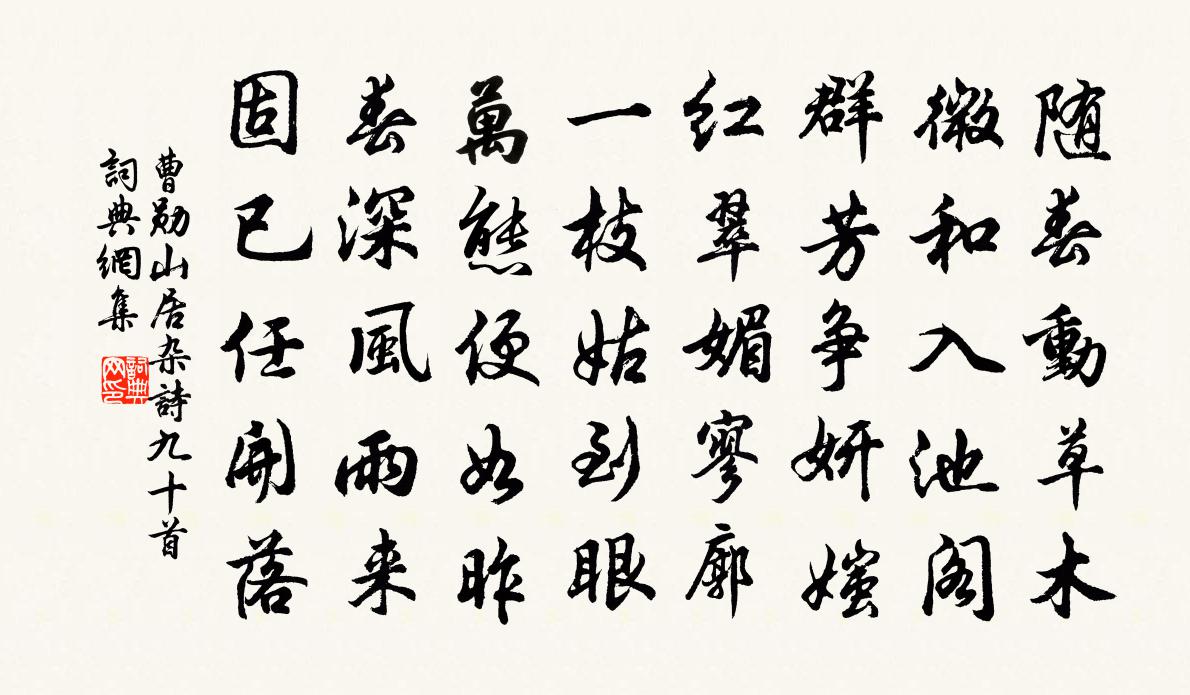 随春動草木
微和入池阁
群芳争妍媸
红翠媚寥廓
一枝姑到眼
萬態便如昨
春深風雨来
固已任開落
曹勋山居杂詩九十首
詞典網集
詞典网印